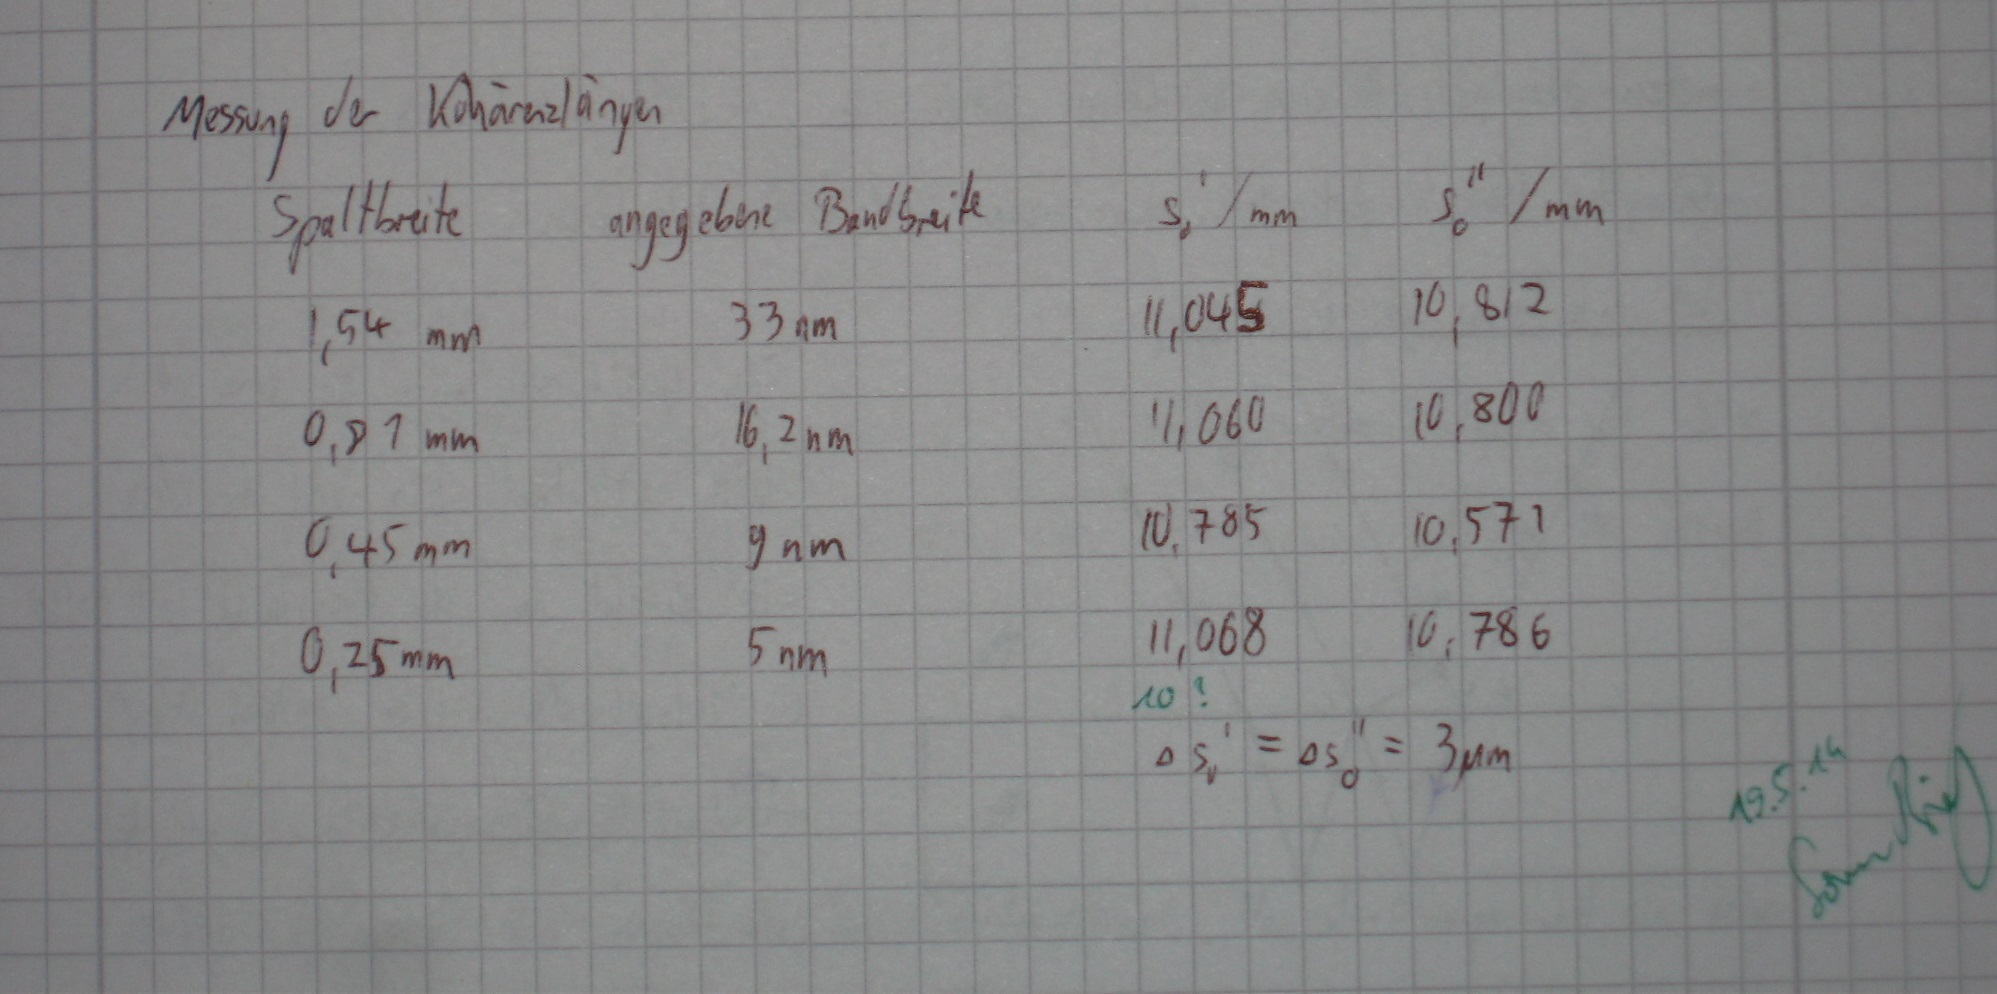 Messung der Kohärenzlängen
Spaltbreite angegebene Bandbreite s₀' /mm s₀'' /mm
1,54 mm 33 nm 11,045 10,812
0,81 mm 16,2 nm 11,060 10,800
0,45 mm 9 nm 10,785 10,571
0,25 mm 5 nm 11,068 10,786
10 ?
Δ s₀' = Δs₀'' = 3 μm
19.5.14